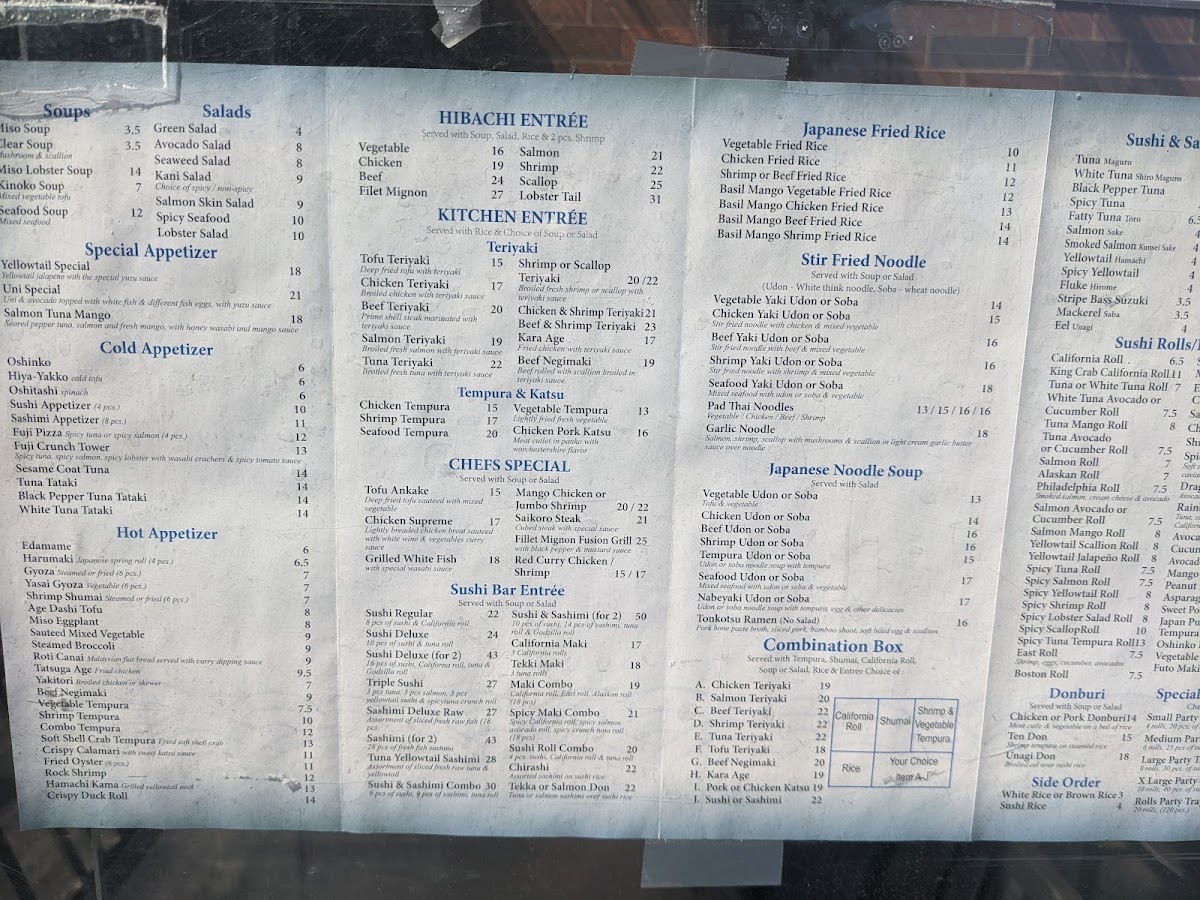 Soups
Miso Soup 3.5
Clear Soup 3.5
Mushroom & scallion
Miso Lobster Soup 14
Kinoko Soup 7
Mixed vegetable tofu
Seafood Soup 12
Mixed seafood
Salads
Green Salad 4
Avocado Salad 8
Seaweed Salad 8
Kani Salad 9
Choice of spicy / non-spicy
Salmon Skin Salad 9
Spicy Seafood 10
Lobster Salad 10
Special Appetizer
Yellowtail Special 18
Yellowtail jalapeno with the special yuzu sauce
Uni Special 21
Uni & avocado topped with white fish & different fish eggs, with yuzu sauce
Salmon Tuna Mango 18
Seared pepper tuna, salmon and fresh mango, with honey wasabi and mango sauce
Cold Appetizer
Oshinko 6
Hiya-Yakko cold tofu 6
Oshitashi spinach 6
Sushi Appetizer (4 pcs.) 10
Sashimi Appetizer (8 pcs.) 11
Fuji Pizza Spicy tuna or spicy salmon (4 pcs.) 12
Fuji Crunch Tower 13
Spicy tuna, spicy salmon, spicy lobster with wasabi crachers & spicy tomato sauce
Sesame Coat Tuna 14
Tuna Tataki 14
Black Pepper Tuna Tataki 14
White Tuna Tataki 14
Hot Appetizer
Edamame 6
Harumaki Japanese spring roll (4 pcs.) 6.5
Gyoza Steamed or fried (6 pcs.) 7
Yasai Gyoza Vegetable (6 pcs.) 7
Shrimp Shumai Steamed or fried (6 pcs.) 7
Age Dashi Tofu 8
Miso Eggplant 8
Sauteed Mixed Vegetable 9
Steamed Broccoli 9
Roti Canai Malaysian flat bread served with curry dipping sauce 9
Tatsuga Age Fried chicken 9.5
Yakitori Broiled chicken or skewer 7
Beef Negimaki 9
Vegetable Tempura 7.5
Shrimp Tempura 10
Combo Tempura 12
Soft Shell Crab Tempura Fried soft shell crab 13
Crispy Calamari with sweet katsu sauce 11
Fried Oyster (6 pcs.) 11
Rock Shrimp 12
Hamachi Kama Grilled yellowtail neck 13
Crispy Duck Roll 14
HIBACHI ENTRÉE
Served with Soup, Salad, Rice & 2 pcs. Shrimp
Vegetable 16
Chicken 19
Beef 24
Filet Mignon 27
Salmon 21
Shrimp 22
Scallop 25
Lobster Tail 31
KITCHEN ENTRÉE
Served with Rice & Choice of Soup or Salad
Teriyaki
Tofu Teriyaki 15
Deep fried tofu with teriyaki
Chicken Teriyaki 17
Broiled chicken with teriyaki sauce
Beef Teriyaki 20
Prime shell steak marinated with
teriyaki sauce
Salmon Teriyaki 19
Broiled fresh salmon with teriyaki sauce
Tuna Teriyaki 22
Broiled fresh tuna with teriyaki sauce
Shrimp or Scallop
Teriyaki 20 / 22
Broiled fresh shrimp or scallop with
teriyaki sauce
Chicken & Shrimp Teriyaki 21
Beef & Shrimp Teriyaki 23
Kara Age 17
Fried chicken with teriyaki sauce
Beef Negimaki 19
Beef rolled with scallion broiled in
teriyaki sauce
Tempura & Katsu
Chicken Tempura 15
Shrimp Tempura 17
Seafood Tempura 20
Vegetable Tempura 13
Lightly fried fresh vegetable
Chicken Pork Katsu 16
Meat cutlet in panko with
worchestershire flavor
CHEFS SPECIAL
Served with Soup or Salad
Tofu Ankake 15
Deep fried tofu sauteed with mixed
vegetable
Chicken Supreme 17
Lightly breaded chicken breat sauteed
with white wine & vegetables curry
sauce
Grilled White Fish 18
with special wasabi sauce
Mango Chicken or
Jumbo Shrimp 20 / 22
Saikoro Steak 21
Cubed steak with special sauce
Fillet Mignon Fusion Grill 25
with black pepper & mustard sauce
Red Curry Chicken /
Shrimp 15 / 17
Sushi Bar Entrée
Served with Soup or Salad
Sushi Regular 22
8 pcs of sushi & California roll
Sushi Deluxe 24
10 pcs of sushi & tuna roll
Sushi Deluxe (for 2) 43
16 pcs of sushi, California roll, tuna &
Godzilla roll
Triple Sushi 27
3 pcs tuna, 3 pcs salmon, 3 pcs
yellowtail sushi & spicytuna crunch roll
Sashimi Deluxe Raw 27
Assortment of sliced fresh raw fish (18
pcs)
Sashimi (for 2) 43
28 pcs of fresh fish sashimi
Tuna Yellowtail Sashimi 28
Assortment of sliced fresh raw tuna &
yellowtail
Sushi & Sashimi Combo 30
6 pcs of sushi, 9 pcs of sashimi, tuna roll
Sushi & Sashimi (for 2) 50
10 pcs of sushi, 14 pcs of sashimi, tuna
roll & Godzilla roll
California Maki 17
3 California rolls
Tekki Maki 18
3 tuna rolls
Maki Combo 19
California roll, East roll, Alaskan roll
(18 pcs)
Spicy Maki Combo 21
Spicy California roll, spicy salmon
avocado roll, spicy crunch tuna roll
(18 pcs)
Sushi Roll Combo 20
4 pcs. sushi, California roll & tuna roll
Chirashi 22
Assorted sashimi on sushi rice
Tekka or Salmon Don 22
Tuna or salmon sashimi over sushi rice
Japanese Fried Rice
Vegetable Fried Rice 10
Chicken Fried Rice 11
Shrimp or Beef Fried Rice 12
Basil Mango Vegetable Fried Rice 12
Basil Mango Chicken Fried Rice 13
Basil Mango Beef Fried Rice 14
Basil Mango Shrimp Fried Rice 14
Stir Fried Noodle
Served with Soup or Salad
(Udon - White think noodle, Soba - wheat noodle)
Vegetable Yaki Udon or Soba 14
Chicken Yaki Udon or Soba 15
Stir fried noodle with chicken & mixed vegetable
Beef Yaki Udon or Soba 16
Stir fried noodle with beef & mixed vegetable
Shrimp Yaki Udon or Soba 16
Stir fried noodle with shrimp & mixed vegetable
Seafood Yaki Udon or Soba 18
Mixed seafood with udon or soba & vegetable
Pad Thai Noodles 13 / 15 / 16 / 16
Vegetable / Chicken / Beef / Shrimp
Garlic Noodle 18
Salmon, shrimp, scallop with mushrooms & scallion in light cream garlic butter
sauce over noodle
Japanese Noodle Soup
Served with Salad
Vegetable Udon or Soba 13
Tofu & vegetable
Chicken Udon or Soba 14
Beef Udon or Soba 16
Shrimp Udon or Soba 16
Tempura Udon or Soba 15
Udon or soba noodle soup with tempura
Seafood Udon or Soba 17
Mixed seafood with udon or soba & vegetable
Nabeyaki Udon or Soba 17
Udon or soba noodle soup with tempura, egg & other delicacies
Tonkotsu Ramen (No Salad) 16
Pork bone paste broth, sliced pork, bamboo shoot, soft biled egg & scallion
Combination Box
Served with Tempura, Shumai, California Roll,
Soup or Salad, Rice & Entree Choice of :
A. Chicken Teriyaki 19
B. Salmon Teriyaki 20
C. Beef Teriyaki 22
D. Shrimp Teriyaki 22
E. Tuna Teriyaki 22
F. Tofu Teriyaki 18
G. Beef Negimaki 20
H. Kara Age 19
I. Pork or Chicken Katsu 19
J. Sushi or Sashimi 22
California Roll
Shumai
Shrimp & Vegetable Tempura
Rice
Your Choice
Item A-J
Sushi & Sa
Tuna Maguro
White Tuna Shiro Maguro
Black Pepper Tuna
Spicy Tuna
Fatty Tuna Toro 6.5
Salmon Sake 4
Smoked Salmon Kunsei Sake 4
Yellowtail Hamachi 4
Spicy Yellowtail 4
Fluke Hirome 4
Stripe Bass Suzuki 3.5
Mackerel Saba 3.5
Eel Unagi 4
Sushi Rolls/
California Roll 6.5
King Crab California Roll 11
Tuna or White Tuna Roll 7
White Tuna Avocado or
Cucumber Roll 7.5
Tuna Mango Roll 8
Tuna Avocado
or Cucumber Roll 7.5
Salmon Roll 7
Alaskan Roll 7
Philadelphia Roll 7.5
Smoked salmon, cream cheese & avocado
Salmon Avocado or
Cucumber Roll 7.5
Salmon Mango Roll 8
Yellowtail Scallion Roll 8
Yellowtail Jalapeño Roll 8
Spicy Tuna Roll 7.5
Spicy Salmon Roll 7.5
Spicy Yellowtail Roll 8
Spicy Shrimp Roll 8
Spicy Lobster Salad Roll 8
Spicy ScallopRoll 10
Spicy Tuna Tempura Roll 13
East Roll 7.5
Shrimp, eggs, cucumber, avocados
Boston Roll 7.5
Drag
Rain
Avoca
Cucum
Avocado
Mango
Peanut
Asparag
Sweet Po
Japan Pu
Tempura
Oshinko
Vegetable
Futo Maki
Donburi
Served with Soup or Salad
Chicken or Pork Donburi 14
Meat cutle & vegetable on a bed of rice
Ten Don 15
Shrimp tempura on steamed rice
Unagi Don 18
Broiled eel over sushi rice
Side Order
White Rice or Brown Rice 3
Sushi Rice 4
Special
Small Party
Medium Par
Large Party T
X Large Party
Rolls Party Tra
20 rolls, (120 pcs.)